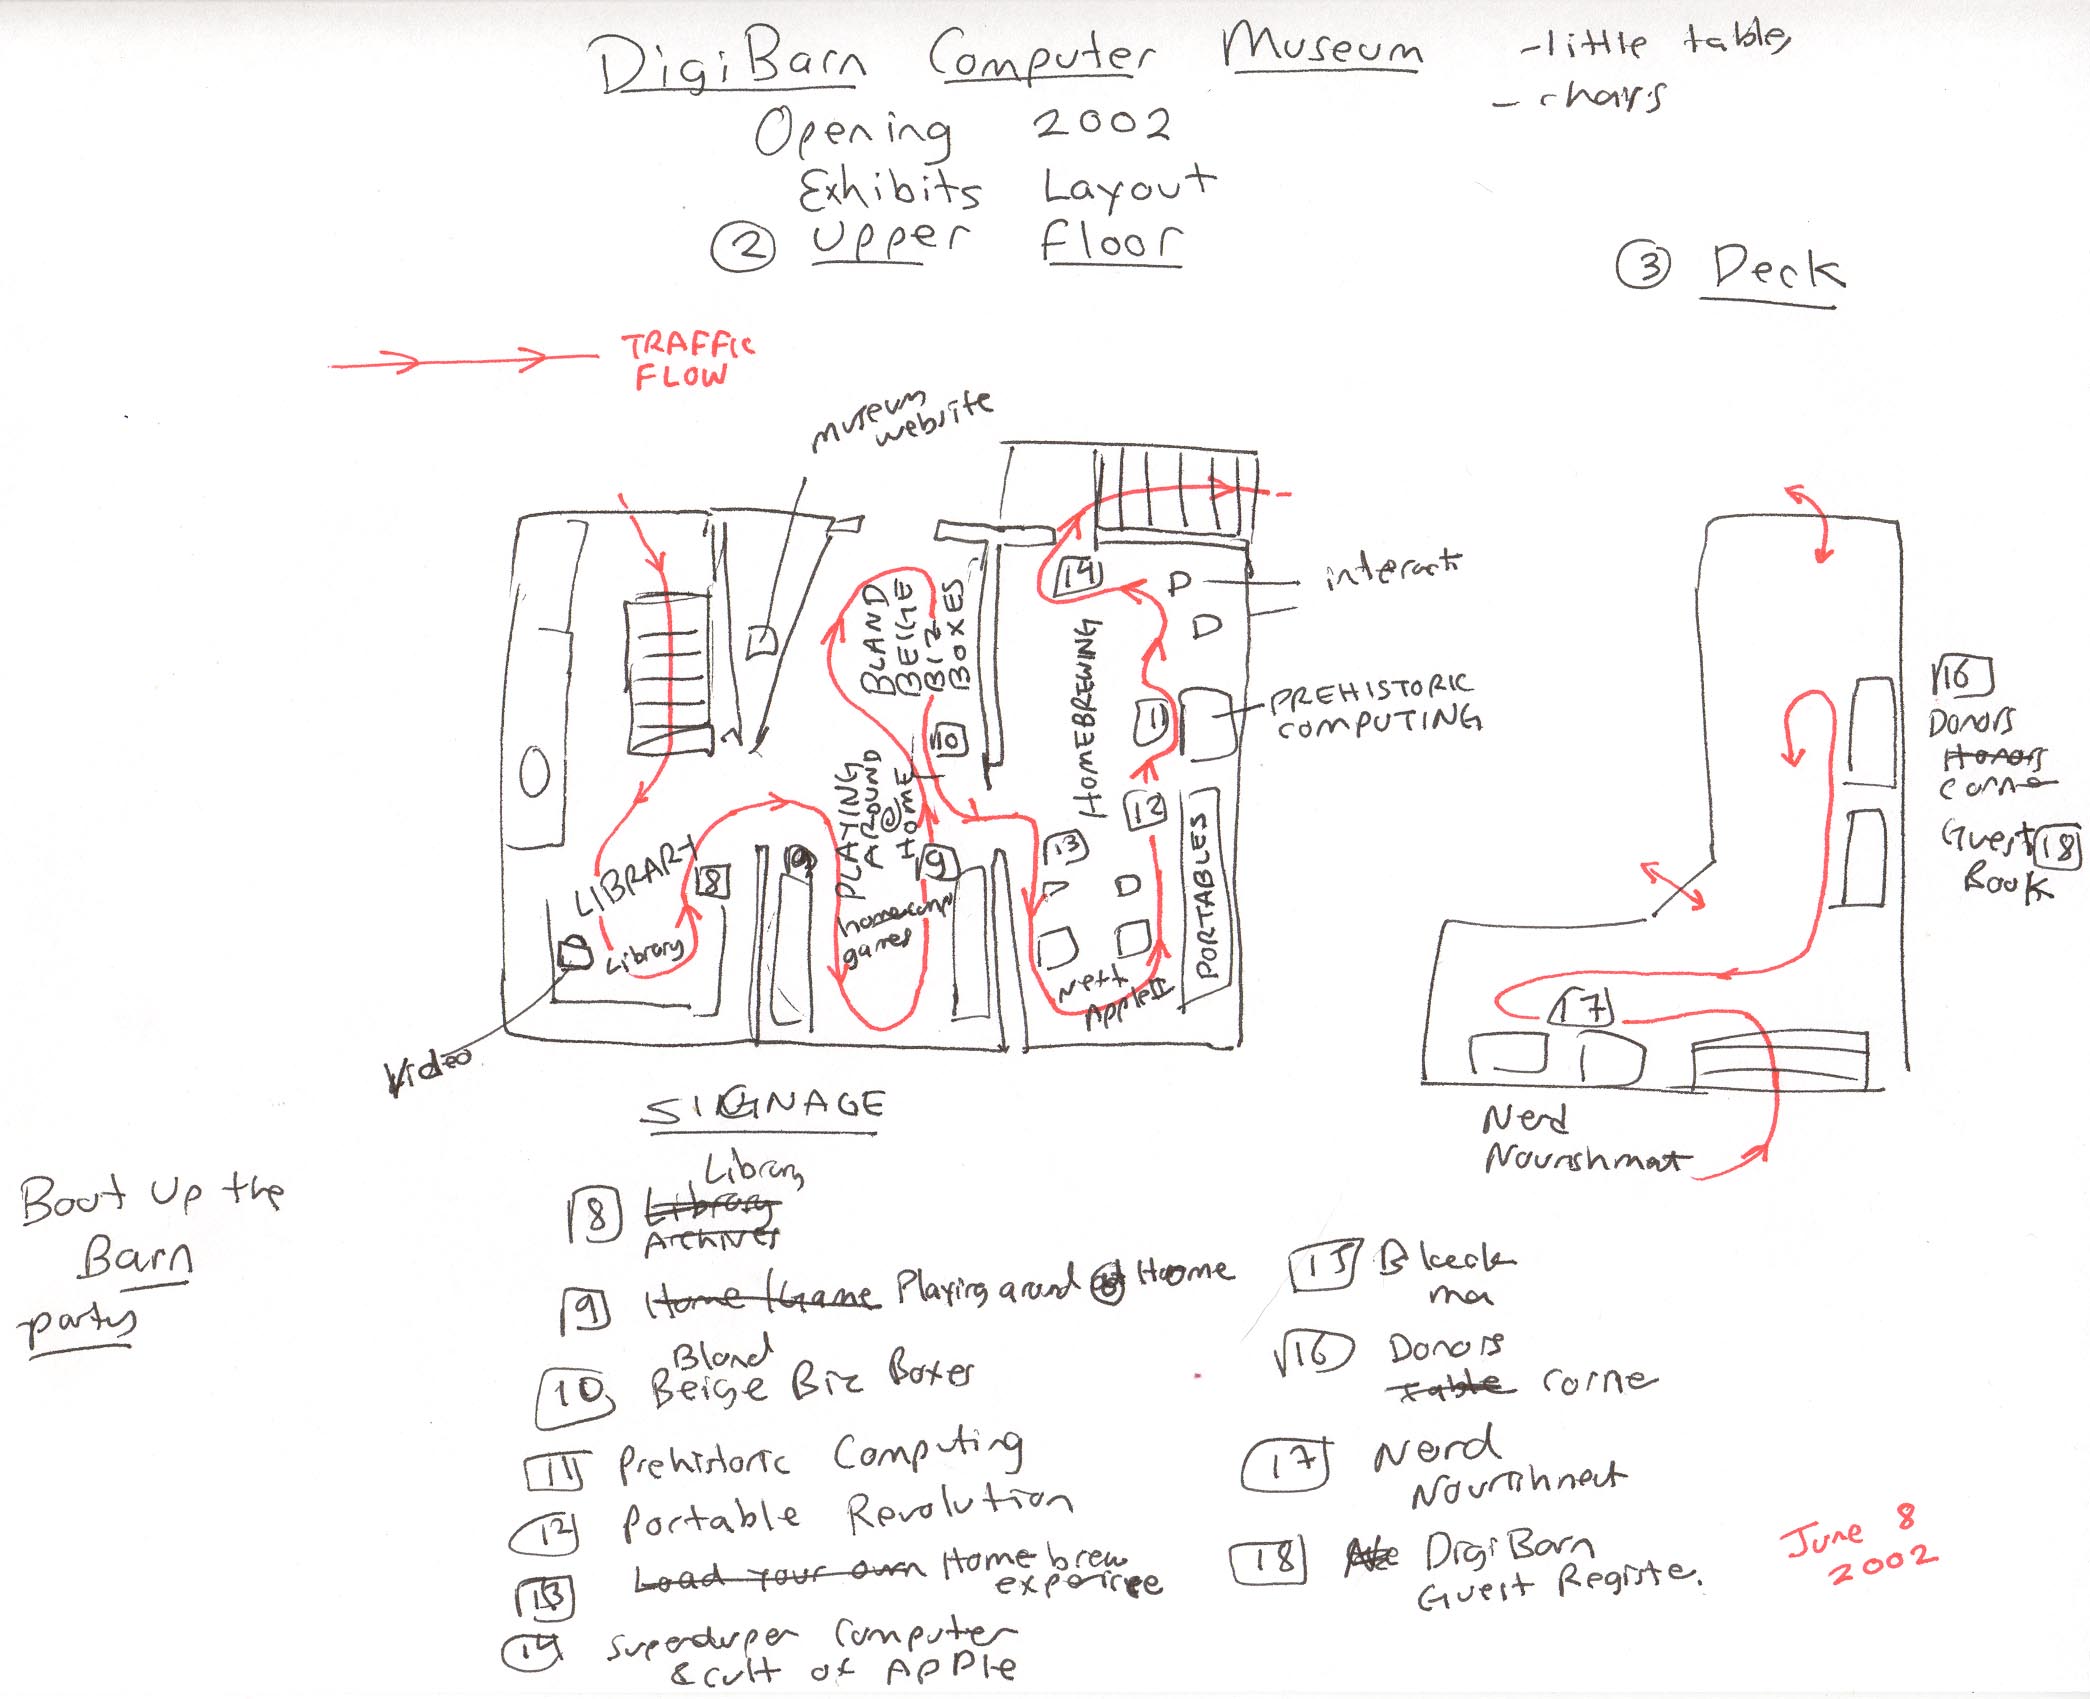 DigiBarn Computer Museum
- little table,
- chairs
Opening 2002
Exhibits Layout
② Upper Floor
③ Deck
TRAFFIC
FLOW
museum
website
interact
BLAND
BEIGE
BIZ
BOXES
14
D
D
HOMEBREWING
11
PREHISTORIC
COMPUTING
10
PLAYING
AROUND
@
HOME
12
13
PORTABLES
LIBRARY
8
9
9
D
D
Library
homecomp
games
Apple II
Video
16
Donors
Honors
Corne
Guest 18
Book
17
Nerd
Nourishmat
SIGNAGE
Library
8 Library
Archives
9 Home/Game Playing around @ Home
Bland
10 Beige Biz Boxes
11 Prehistoric Computing
12 Portable Revolution
13 Load your own Homebrew
experience
14 Superduper Computer
& cult of APPle
15
16 Donors
Table corne
17 Nerd
Nourishment
18 DigiBarn
Guest Registe.
Boot Up the
Barn
party
June 8
2002